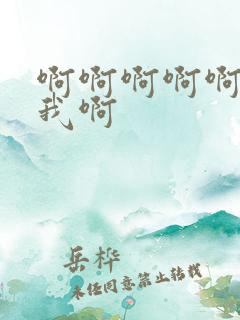 啊啊啊啊啊
我啊
岳桦
未经同意禁止转载